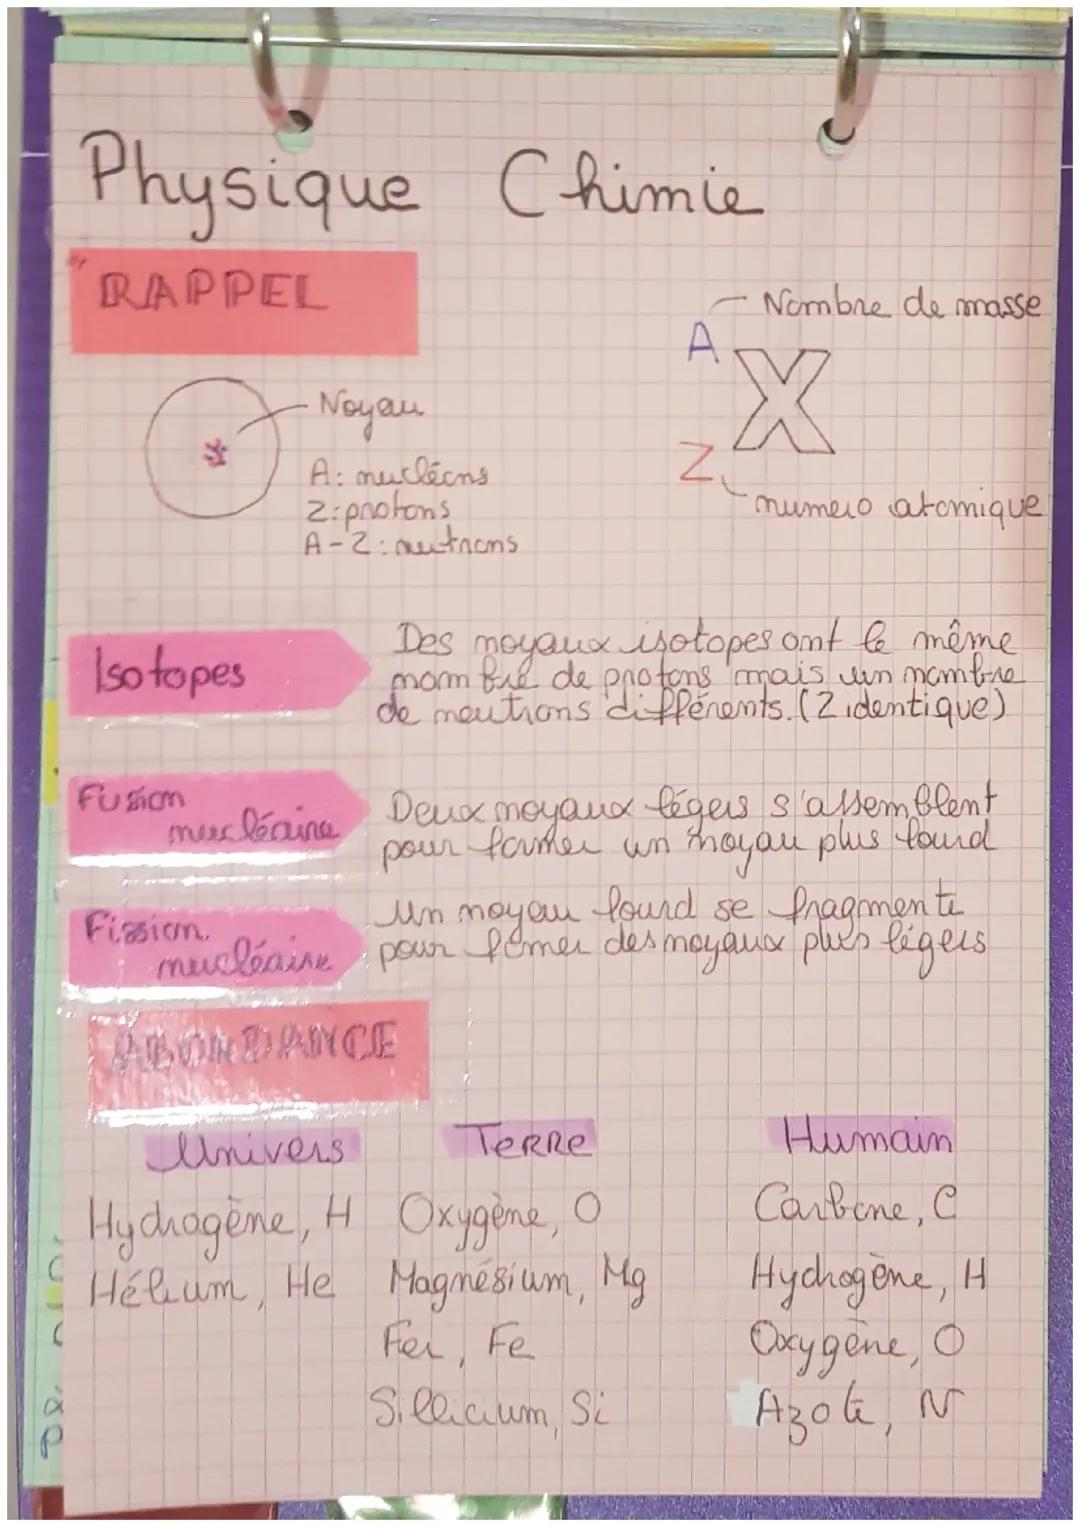 Physique Chimie
RAPPEL
Nombre de masse
A
X
Z
numero atomique
Noyau
A: nucléons
Z: protons
A-Z: neutrons
Isotopes
Des noyaux isotopes ont le même
nombre de protons mais un nombre
de neutrons différents. (Z identique)
Fusion
nucléaire
Deux noyaux légers s'assemblent
pour former un noyau plus lourd
Fission
nucléaire
Un noyau lourd se fragmente
pour former des noyaux plus légers
ABONDANCE
Univers Terre Humain
Hydrogène, H Oxygène, O Carbone, C
Hélium, He Magnésium, Mg Hydrogène, H
Fer, Fe Oxygène, O
Sillicium, Si Azote, N